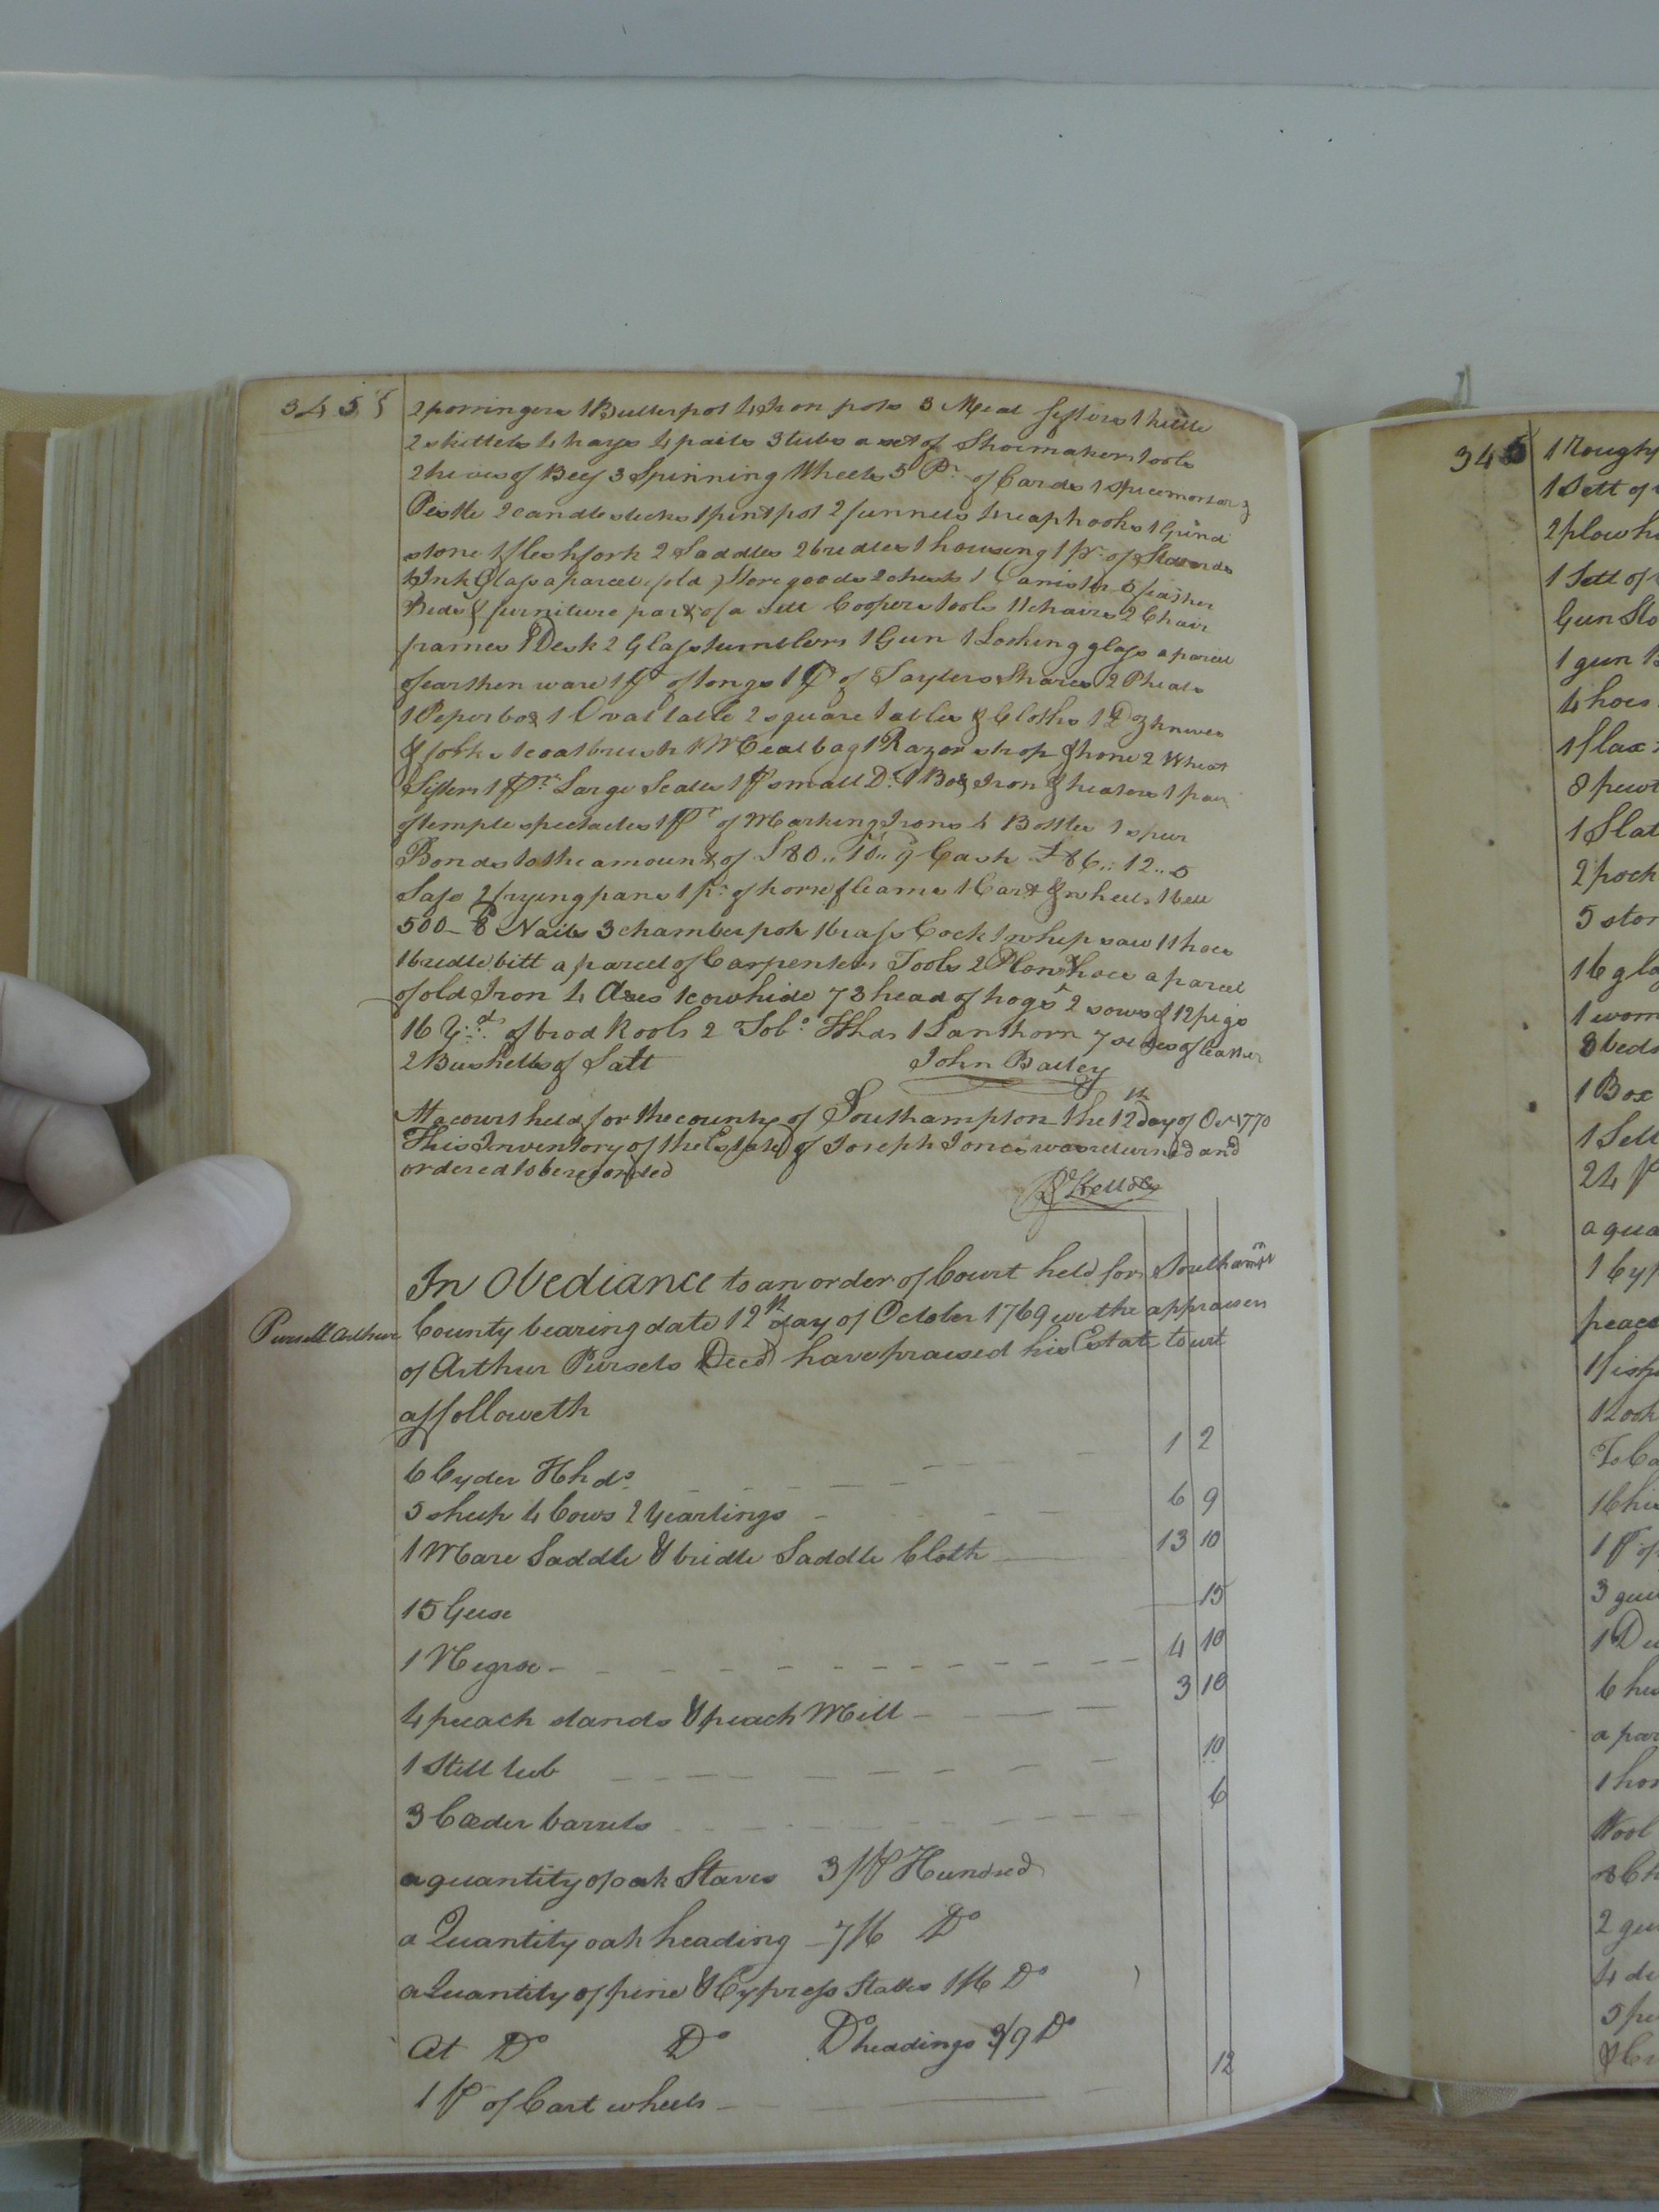 345
2 porringers 1 Butter pot 4 Iron pots 3 Meal sifters 1 kettle
2 skittels 4 trays 4 pails 3 tubs a set of Shoemakers tools
2 hives of Beey 3 Spinning Wheels 5 Pr. of Cards 1 spice mortar &
Pestle 2 candlesticks 1 pint pot 2 funnels 4 reap hooks 1 Grind
stone 1 flesh fork 2 Saddles 2 bridles 1 housing 1 pr. of
Ink Glass a parcel of old Store goods 2 chests 1 Canister 5 feather
Beds & furniture part of a sett Coopers tools 11 chairs 2 Chair
frames 1 Desk 2 Glass tumblers 1 Gun 1 Looking glass a parcel
of earthen ware 1 pr of tongs 1 pr of Taylers Shares 2 Pheals
1 Peper box 1 Oval table 2 square tables & Cloths 1 Dz knives
& forks 1 coat brush 1 Meal bag 1 Razor strop & hone 2 Wheat
Sifters 1 pr. Large Scales 1 pr small Do. 1 Box Iron & heaters 1 pair
of temple spectacles 1 pr of Marking Irons 4 Bottles 1 spur
Bonds to the amount of £80..10..9 Cash £86..12..5
Safe 2 frying pans 1 pr. of horse fleams 1 Cart & wheels 1 bell
500 8 Nails 3 chamber pots 1 brass Cock 1 whip saw 11 hoes
1 bridle bitt a parcel of Carpenters Tools 2 Plow hoes a parcel
of old Iron 4 Axes 1 cowhide 73 head of hogs 2 sows & 12 pigs
16 Yd. of brod Rools 2 Tobo. Hhds 1 Lanthorn 7 sides of leather
2 Bushells of Salt John Bailey
At a court held for the county of Southampton the 12th Day of Oct 1770
This Inventory of the Estate of Joseph Jones was returned and
ordered to be recorded
In Obediance to an order of Court held for Southamptn
Pursell Arthur County bearing date 12th day of October 1769 we the appraisers
of Arthur Pursels Decd have praised his Estate to wit
as followeth
6 Cyder Hhds. 1 2
5 sheep 4 Cows 2 Yearlings 6 9
1 Mare Saddle & bridle Saddle Cloth 13 10
15 Geese 15
1 Negroe 4 10
4 peach stands & peach Mill 3 10
1 Still tub 10
3 Cæder barrels 6
a quantity of oak Staves 3/ p Hundred
a Quantity oak heading 7/6 Do
a Quantity of pine & Cypress Staves 1/6 Do
At Do Do Do headings 3/9 Do
1 pr of Cart wheels 12
345
1 Sett of
1 Sett of
Gun Sto
1 gun B
4 hoes
1 flax
8 pewt
1 Slat
2 pock
5 ston
16 gla
1 wom
8 beds
1 Box
1 Sett
24 P
a qua
1 Cyp
peace
1 fish
1 Look
To Ca
1 Chi
3 gu
1 De
6 hu
a par
1 hor
Wool
2 gu
4 di
5 pe